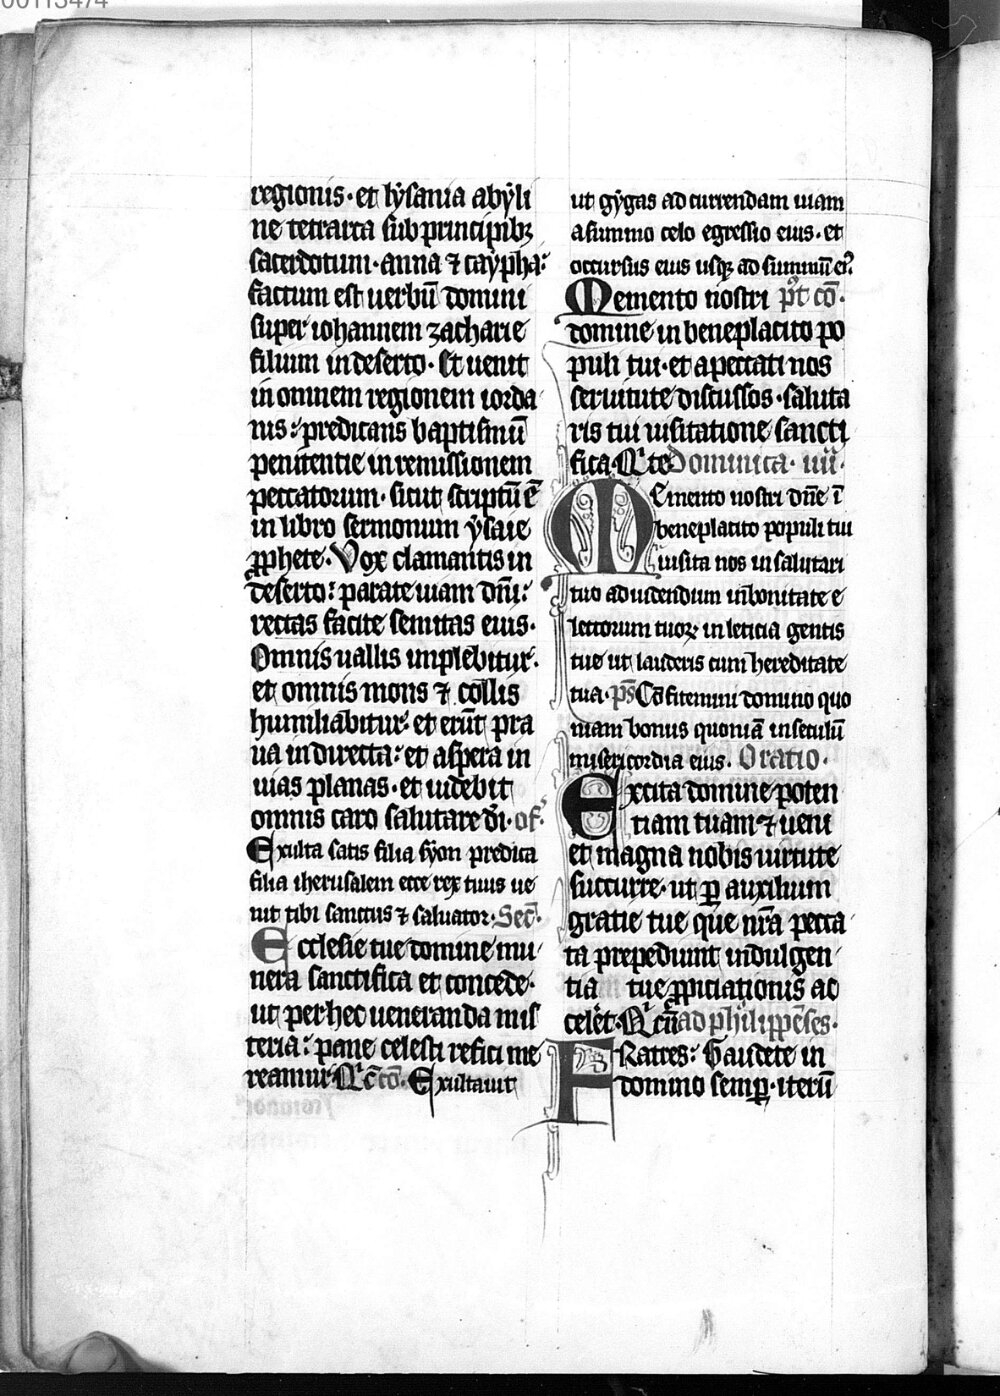 00113474
regionis · et lẏsania abẏli
ne tetrarca sub principibꝫ
sacerdotum · anna ⁊ caẏpha:
factum est uerbū domini
super iohannem zacharie
filium in deserto · Et uenit
in omnem regionem iorda
nis : predicans baptismū
penitentie in remissionem
peccatorum · sicut scriptū ē
in libro sermonum ẏsaie
ꝓphete · Vox clamantis in
deserto : parate uiam dn̄i :
rectas facite semitas eius ·
Omnis uallis implebitur ·
et omnis mons ⁊ collis
humiliabitur · et erūt pra
ua in directa : et aspera in
uias planas · et uidebit
omnis caro salutare dī · of
Exulta satis filia sẏon predica
filia iherusalem ecce rex tuus ue
nit tibi sanctus ⁊ saluator · Sec̄ ·
Ecclesie tue domine mu
nera sanctifica et concede ·
ut per hec ueneranda mis
teria : pane celesti refici me
reamur · co · Exultauit
ut gẏgas ad currendam uiam
a summo celo egressio eius · et
occursus eius usqꝫ ad summū ei?
Memento nostri pꝰt cō ·
domine in beneplacito po
puli tui · et a peccati nos
seruitute discussos · saluta
ris tui uisitatione sancti
fica · te Dominica · iiii ·
Memento nostri dn̄e ī
beneplacito populi tui
uisita nos in salutari
tuo ad uidendum in bonitate e
lectorum tuoꝝ in leticia gentis
tue ut lauderis cum hereditate
tua · ps̄ Cōfitemini domino quo
niam bonus quoniā in seculū
misericordia eius · Oratio ·
Excita domine poten
tiam tuam ⁊ ueni
et magna nobis uirtute
succurre · ut ꝑ auxilium
gratie tue que nr̄a pecca
ta prepediunt indulgen
tia tue ꝓpiciationis ac
celēt · ad philippenses ·
FRatres : Gaudete in
domino semꝑ · iterū